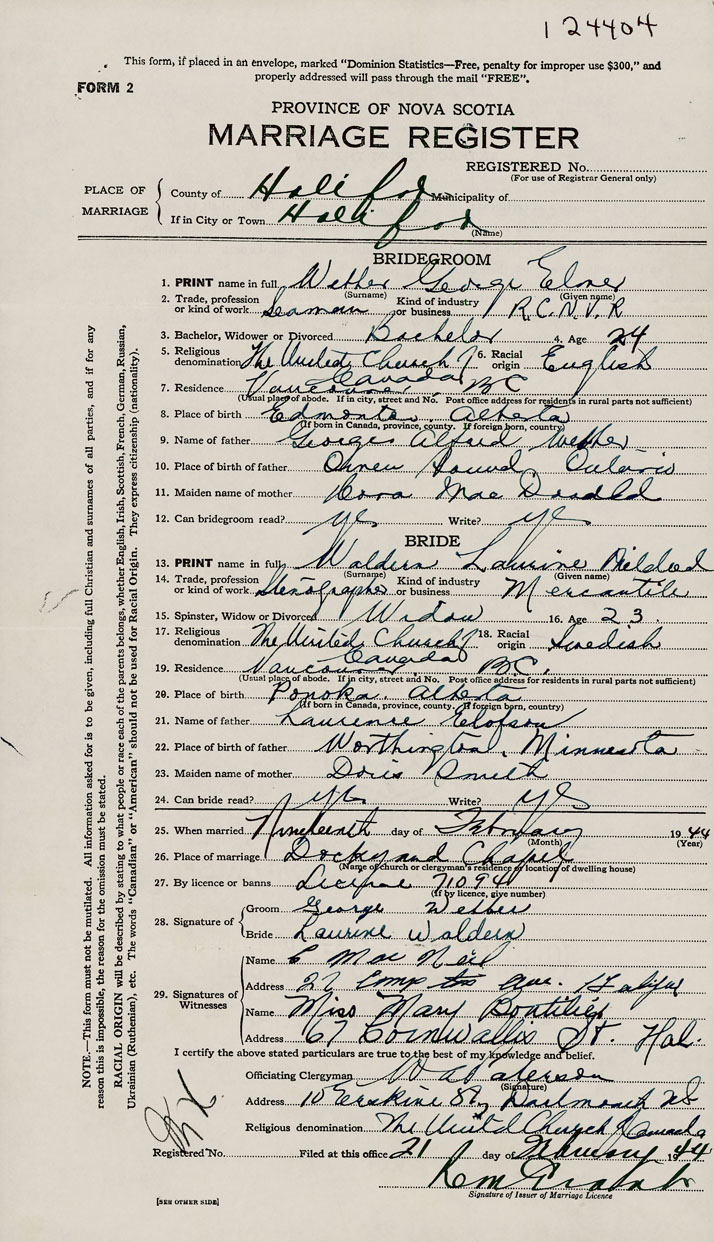 124404
This form, if placed in an envelope, marked "Dominion Statistics—Free, penalty for improper use $300," and
properly addressed will pass through the mail "FREE".
FORM 2
PROVINCE OF NOVA SCOTIA
MARRIAGE REGISTER
REGISTERED No.
(For use of Registrar General only)
PLACE OF MARRIAGE
County of Halifax Municipality of
If in City or Town Halifax
(Name)
BRIDEGROOM
1. PRINT name in full George Elmer
(Surname) (Given name)
2. Trade, profession or kind of work Seaman Kind of industry or business R.C.N.V.R
3. Bachelor, Widower or Divorced Bachelor 4. Age 24
5. Religious denomination The United Church of Canada 6. Racial origin English
7. Residence Vancouver BC
(Usual place of abode. If in city, street and No. Post office address for residents in rural parts not sufficient)
8. Place of birth Edmonton Alberta
(If born in Canada, province, county. If foreign born, country)
9. Name of father George Alfred
10. Place of birth of father Owen Sound, Ontario
11. Maiden name of mother Mae
12. Can bridegroom read? yes Write? yes
BRIDE
13. PRINT name in full Waldern Laurine Mildred
(Surname) (Given name)
14. Trade, profession or kind of work Stenographer Kind of industry or business Mercantile
15. Spinster, Widow or Divorced Widow 16. Age 23.
17. Religious denomination The United Church of Canada 18. Racial origin Swedish
19. Residence Vancouver B.C.
(Usual place of abode. If in city, street and No. Post office address for residents in rural parts not sufficient)
20. Place of birth Ponoka. Alberta
(If born in Canada, province, county. If foreign born, country)
21. Name of father Laurence Elofson
22. Place of birth of father Worthington, Minnesota
23. Maiden name of mother Doris Smith
24. Can bride read? yes Write? yes
25. When married Nineteenth day of February 1944
(Month) (Year)
26. Place of marriage Dockyard Chapel
(Name of church or clergyman's residence or location of dwelling house)
27. By licence or banns License 71094
(If by licence, give number)
28. Signature of
Groom George Webber
Bride Laurine Waldern
29. Signatures of Witnesses
Name C Mac Neil
Address 27 Ave. Halifax
Name Miss Mary
Address 67 Cornwallis St. Hal.
I certify the above stated particulars are true to the best of my knowledge and belief.
Officiating Clergyman Paterson
(Signature)
Address 10 Erskine St, Dartmouth NS
Religious denomination The United Church of Canada
Registered No. Filed at this office 21 day of February 1944
Signature of Issuer of Marriage Licence
[SEE OTHER SIDE]
NOTE.—This form must not be mutilated. All information asked for is to be given, including full Christian and surnames of all parties, and if for any
reason this is impossible, the reason for the omission must be stated.
RACIAL ORIGIN will be described by stating to what people or race each of the parents belongs, whether English, Irish, Scottish, French, German, Russian,
Ukrainian (Ruthenian), etc. The words "Canadian" or "American" should not be used for Racial Origin. They express citizenship (nationality).